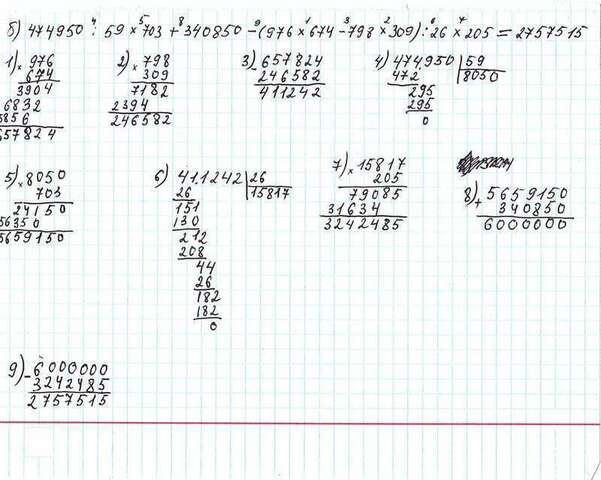 б) 474950 : 59 × 703 + 340850 - (976 × 674 - 798 × 309) : 26 × 205 = 2757515
4 5 8 9 1 3 2 6 7
1) × 976
674
3904
6832
5856
657824
2) × 798
309
7182
2394
246582
3) - 657824
246582
411242
4) 474950 | 59
472 8050
295
295
0
5) × 8050
703
24150
56350
5659150
6) 411242 | 26
26 15817
151
130
212
208
44
26
182
182
0
7) × 15817
205
79085
31634
3242485
8) + 5659150
340850
6000000
9) - 6000000
3242485
2757515